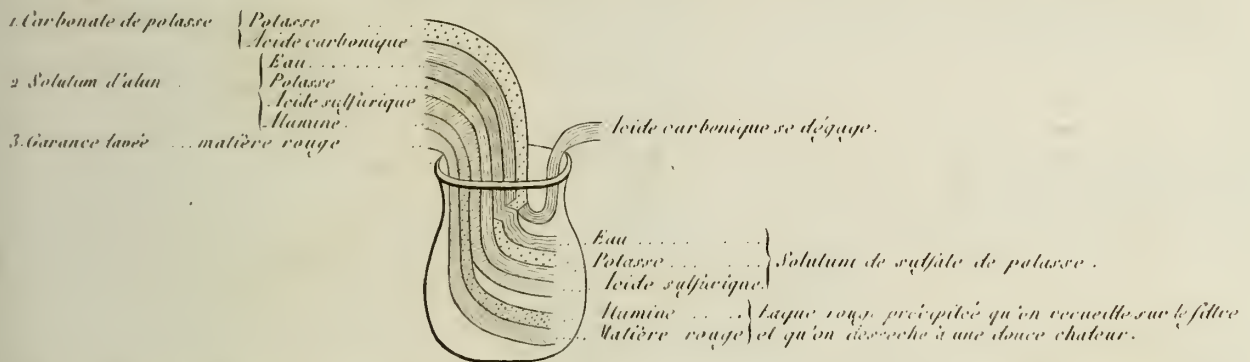 1. Carbonate de potasse { Potasse .. ...
{ Acide carbonique
2 Solutum d'alun . { Eau . . . . . . . .
{ Potasse . . . . . .
{ Acide sulfurique
{ Alumine .
3. Garance lavée ... matière rouge ..
Acide carbonique se dégage.
... Eau .. ... . . ... }
... Potasse . . ... . ... } Solutum de sulfate de potasse .
... Acide sulfurique. }
... Alumine .. .. } Laque roug. précipité qu'on recueille sur le filtre
... Matière rouge } et qu'on desseche à une douce chaleur.